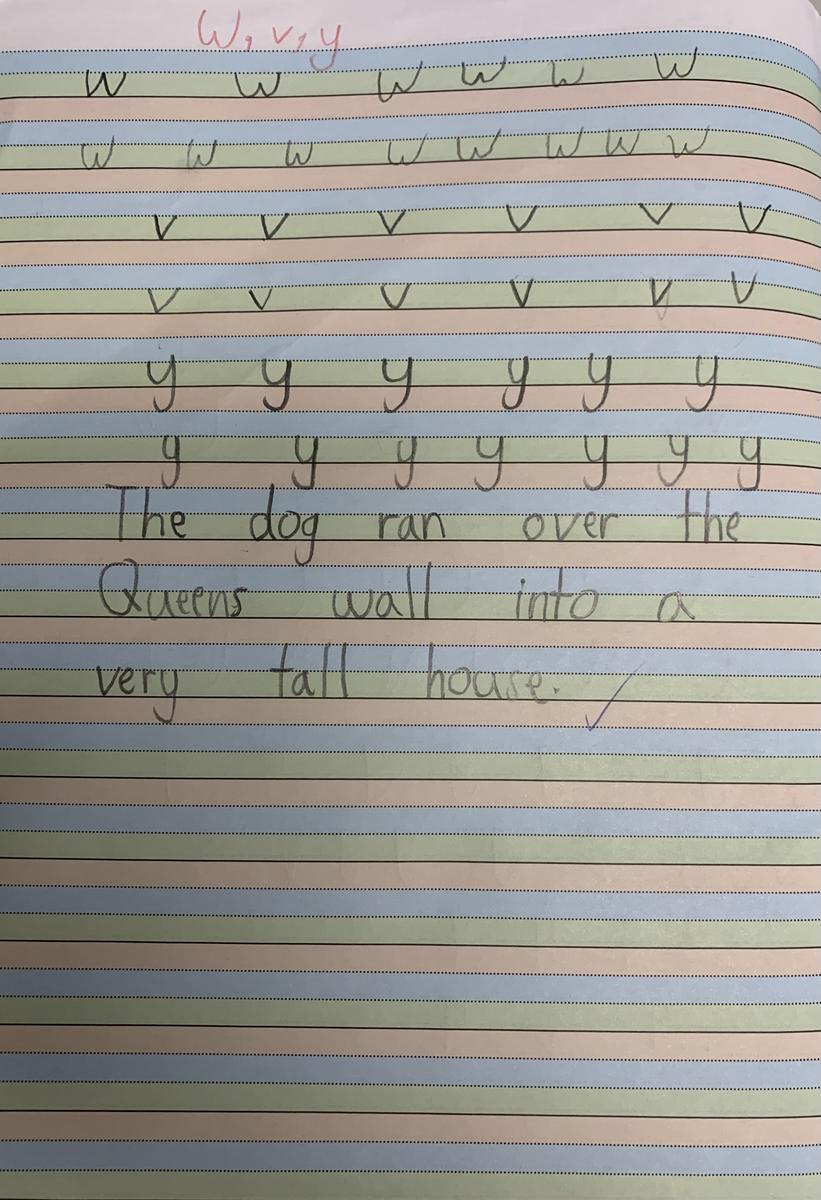 W, v, y
w w w w w w
w w w w w w w w
v v v v v v
v v v v v v
y y y y y y
y y y y y y y
The dog ran over the
Queens wall into a
very tall house.